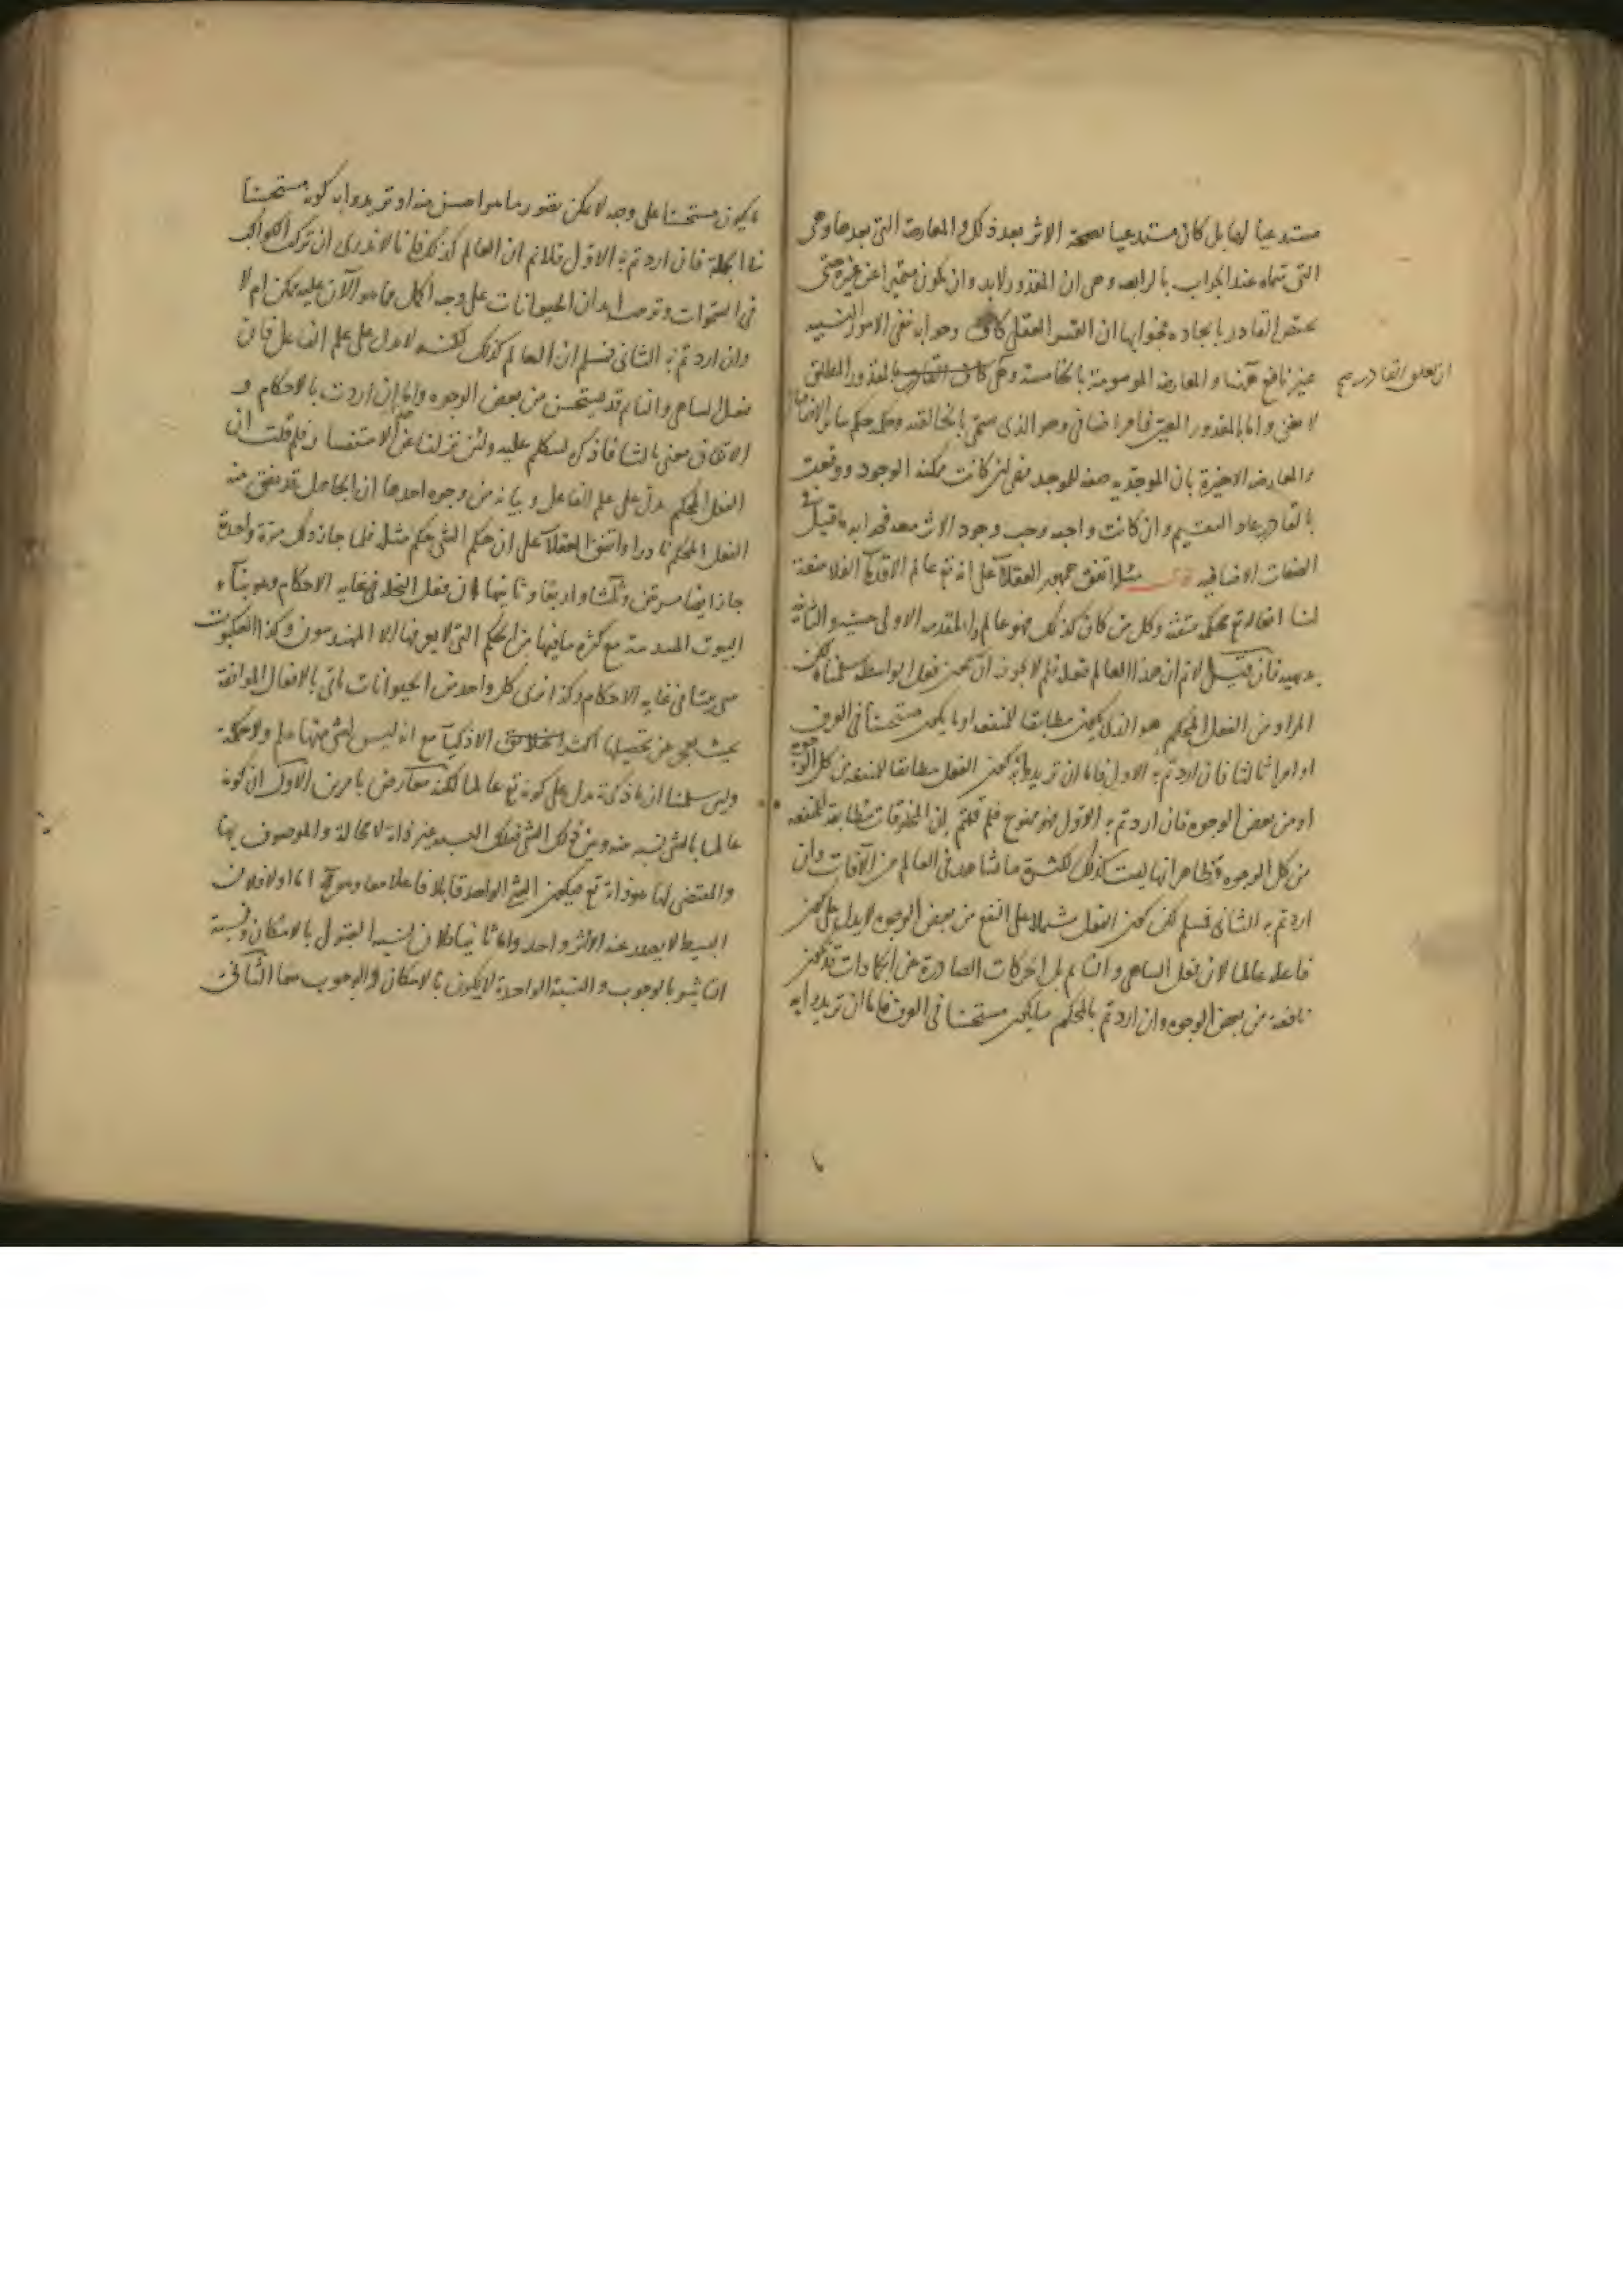 مستدعيا لقابل كان مستدعيا لصحة الاثر بعد ذلك والمعارضة التي بعدها وهي
التي تماه عند الجواب بالرابعة وهي ان المقدور لابد وان يكون متميزا عن غيره حتى
يختص القادر بايجاده فجوابها ان التميز العقلي كاف وجوابه نفي الامور النسبية
غير نافع ههنا والمعارضة الموسومة بالخامسة وهي بالمقدور المطلق
ان تعلق القادرية
لا معنى واما بالمقدور المعين فامر اضافي وهو الذي سمى بالخالقية وحكمه حكم سائر الاضافات
والمعارضة الاخيرة بان الموجدية صفة للموجد فهي ان كانت ممكنة الوجود ووقعت
بالقادر عاد التقسيم وان كانت واجبة وجب وجود الاثر معه فجوابه ما قيل في
الصفات الاضافية مسئلة اتفق جمهور العقلاء على انه تع عالم الا قدماء الفلاسفة
لنا افعاله تع محكمة متقنة وكل من كان كذلك فهو عالم والمقدمة الاولى حسية والثانية
بديهية فان قيل لا نم ان هذا العالم فعله فلم لا يجوز ان يكون فعل الواسطة سلمناه لكن
المراد من الفعل المحكم هو الذي يكون مطابقا للمنفعة او ما يكون مستحسنا في العرف
او امرا ثالثا فان اردتم به الاول فاما ان تريدوا به كون الفعل مطابقا للمنفعة من كل الوجوه
او من بعض الوجوه فان اردتم به الاول فهو ممنوع فلم قلتم بان المخلوقات مطابقة للمنفعة
من كل الوجوه وظاهر انها ليست كذلك لكثرة ما نشاهد في العالم من الآفات وان
اردتم به الثاني فسلم لكن كون الفعل مشتملا على النفع من بعض الوجوه لا يدل على كون
فاعله عالما لان فعل الساهي والنائم بل الحركات الصادرة عن الجمادات قد تكون
نافعة من بعض الوجوه وان اردتم بالمحكم ما يكون مستحسنا في العرف فاما ان تريدوا به
ما يكون مستحسنا على وجه لا يمكن تصور ما هو احسن منه او تريدوا به كونه مستحسنا
في الجملة فان اردتم به الاول فلا نم ان العالم كذلك فانا لا ندري ان تركب الكواكب
في السموات وتوصيل ابدان الحيوانات على وجه اكمل مما هو الآن عليه يمكن ام لا
وان اردتم به الثاني فسلم ان العالم كذلك لكنه لا يدل على علم الفاعل فان
فعل الساهي والنائم قد يستحسن من بعض الوجوه واما ان اردت بالاحكام و
الاتقان معنى ثالثا فاذكره لنتكلم عليه ولئن نزلنا عن الاستفسار فلم قلت ان
الفعل المحكم يدل على علم الفاعل وبيانه من وجوه احدها ان الجاهل قد يتفق منه
الفعل المحكم نادرا واتفق العقلاء على ان حكم الشئ حكم مثله فلما جاز ذلك مرة واحدة
جاز ايضا مرتين وثلثا واربعا وثانيها ان فعل النحل في غاية الاحكام وهو بناء
البيوت المسدسة مع كثرة ما فيها من الحكم التي لا يعرفها الا المهندسون وكذا العنكبوت
يبني بيتا في غاية الاحكام وكذا نرى كل واحد من الحيوانات ياتي بالافعال الموافقة
بحيث يعجز عن تحصيلها الاذكياء مع انه ليس لشئ منها علم ولا حكمة
ولئن سلمنا ان ما ذكرته يدل على كونه تع عالما لكنه معارض بامرين الاول ان كونه
عالما بالشئ نسبة بينه وبين ذلك الشئ فتلك النسبة غير ذاته لا محالة والموصوف بها
والمقتضي لها هو ذاته تع فيكون الشئ الواحد قابلا وفاعلا معا وهو مح اما اولا فلان
البسيط لا يصدر عنه الا اثر واحد واما ثانيا فلان نسبة القبول بالامكان ونسبة
التاثير بالوجوب والنسبة الواحدة لا يكون بالامكان والوجوب معا الثاني